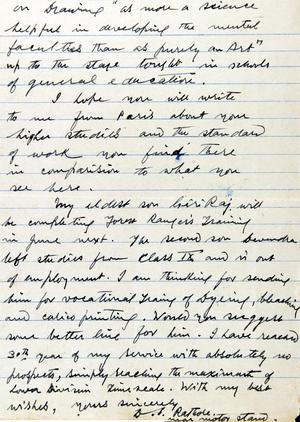 on Drawing "as more a science
helpful in developing the mental
faculties than as purely an Art"
up to the stage taught in schools
of general education.
I hope you will write
to me from Paris about your
higher studies and the standard
of work you find there
in comparision to what you
see here.
My eldest son Giri Raj will
be completing Forest Rangers Training
in June next. The second son Devendra
left studies from Class IX and is out
of employment. I am thinking for sending
him for vocational Traing of Dyeing, bleaching
and calico printing. Would you suggest
some better line for him. I have reached
30th year of my service with absolutely no
prospects, simply reaching the maximum of
Lower Division time scale. With my best
wishes, yours sincerely
near motor stand.